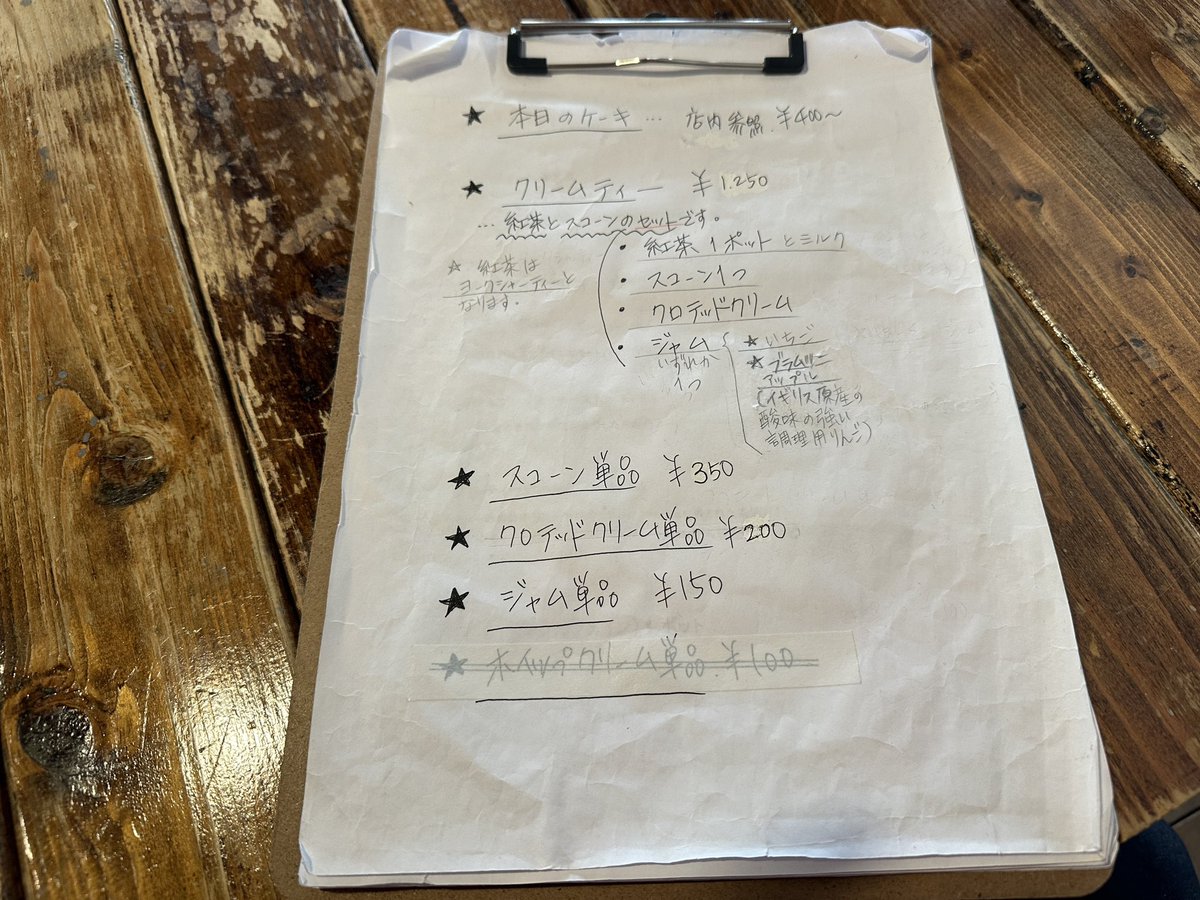 ★ 本日のケーキ … 店内参照 ¥400〜
★ クリームティー ¥1.250
… 紅茶とスコーンのセットです。
・紅茶 1ポットとミルク
★ 紅茶は
ヨークシャーティーと
なります。
・スコーン1つ
・クロテッドクリーム
・ジャム
いずれか
1つ
★いちご
★ブラムリー
アップル
(イギリス原産の
酸味の強い
調理用りんご)
★ スコーン単品 ¥350
★ クロテッドクリーム単品 ¥200
★ ジャム単品 ¥150
★ ホイップクリーム単品 ¥100